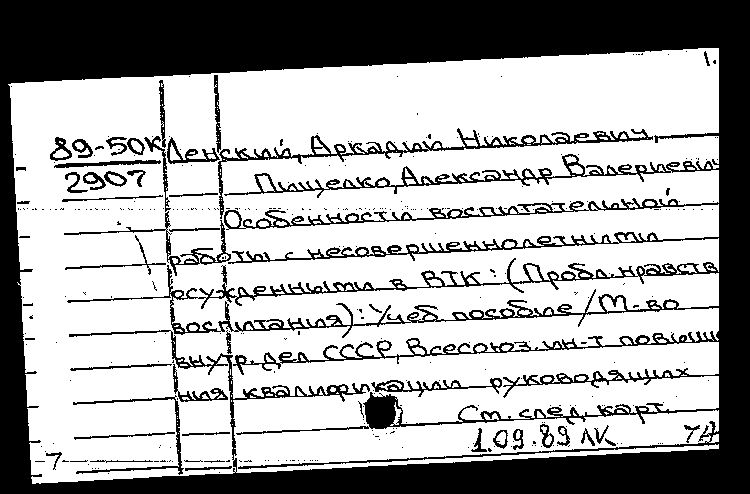 1.
89-50К Ленский, Аркадий Николаевич,
2907 Пищелко, Александр Валериевич
Особенности воспитательной
работы с несовершеннолетними
осужденными в ВТК: (Пробл. нравств
воспитания): Учеб пособие / М-во
внутр. дел СССР, Всесоюз. ин-т повыше
ния квалификации руководящих
См. след. карт.
1.09.89 ЛК
7